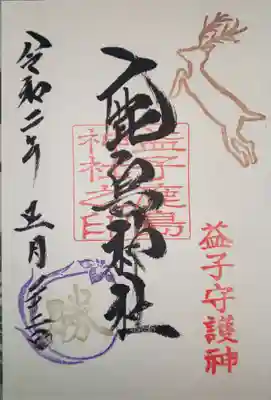 益子守護神
鹿島神社
益子鹿島
神社之印
令和二年
勝